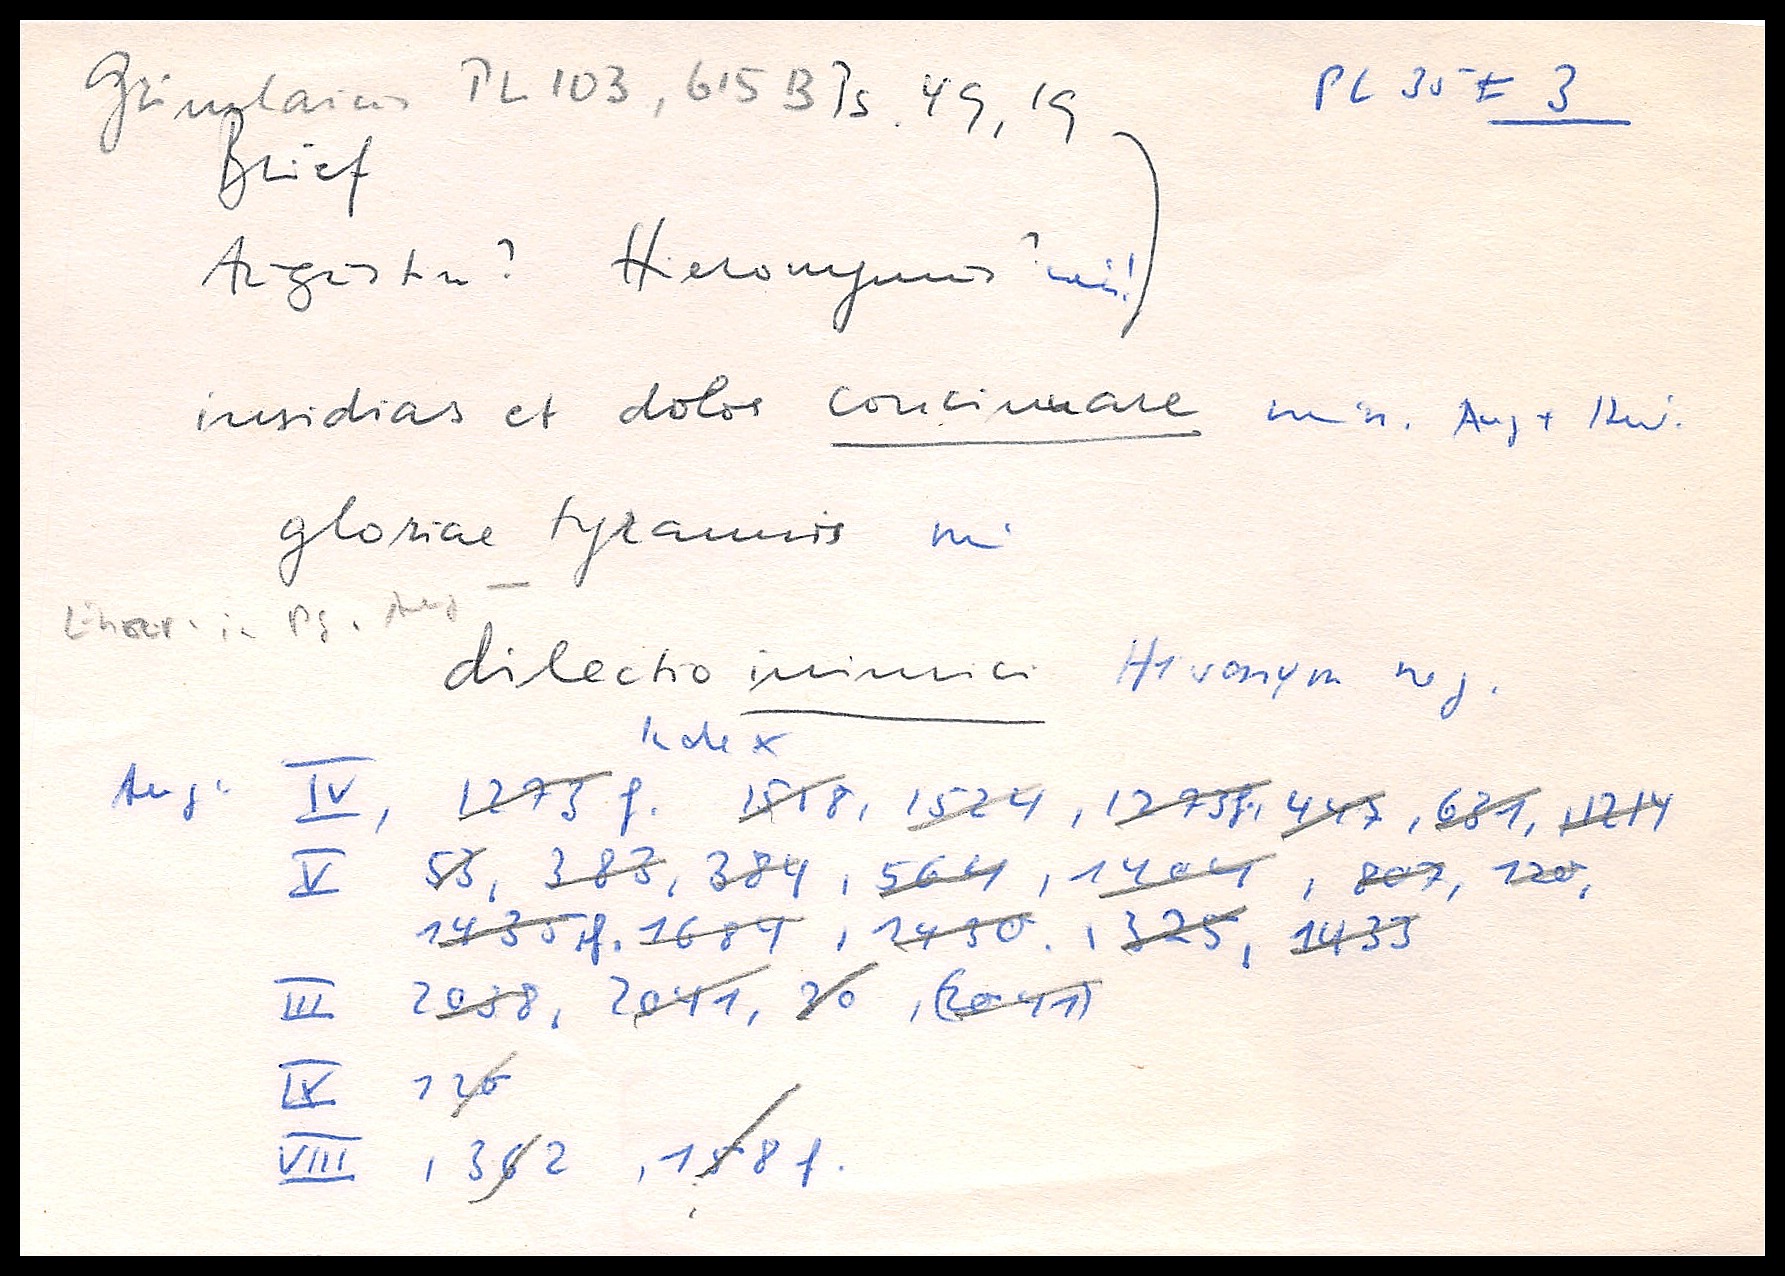 Grimlaicus PL 103, 615 B Ps. 49, 19 PL 35 = 3
Brief
Augustin? Hieronymus? nein!
insidias et dolos concinnare Aug +
gloriae tyrannis
in Ps. Aug
dilectio inimici Hieronym neg.
Index
Aug: IV, 1273 f. 1518, 1524, 1273f, 447, 631, 1214
V 53, 383, 384, 564, 1404, 807, 120,
1435 ff. 1684, 1430, 325, 1433
III 2038, 2041, 20, (2041)
IX 126
VIII, 362, 188 f.